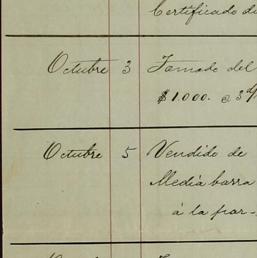 Certificado de
Octubre 3 Tomado del
$1.000. @ 3
Octubre 5 Vendido de
Media barra
á la par-